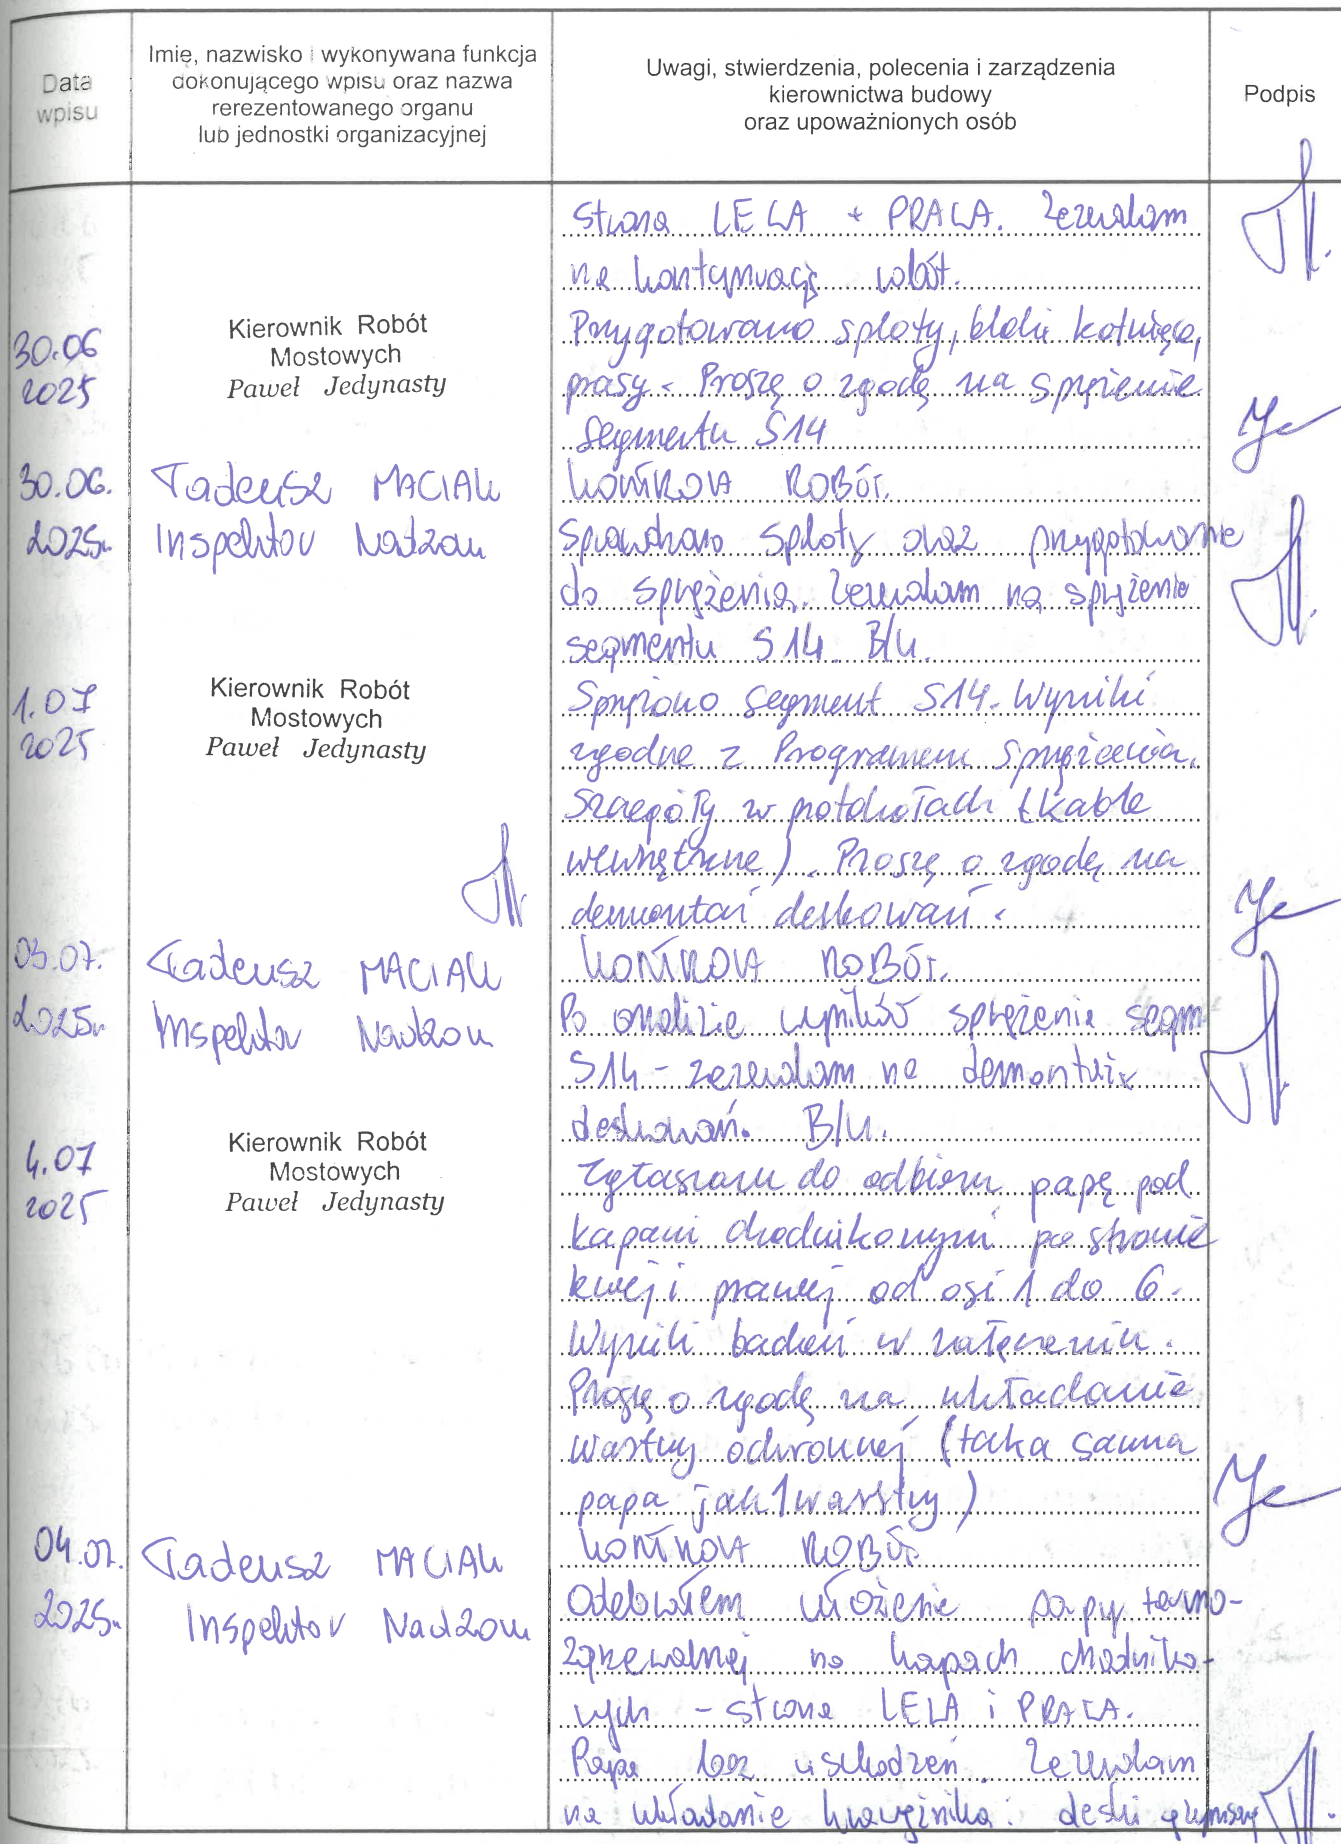 Data
wpisu
Imię, nazwisko i wykonywana funkcja
dokonującego wpisu oraz nazwa
rerezentowanego organu
lub jednostki organizacyjnej
Uwagi, stwierdzenia, polecenia i zarządzenia
kierownictwa budowy
oraz upoważnionych osób
Podpis
strona LEWA + PRAWA. Zezwalam
na kontynuację robót.
30.06
2025
Kierownik Robót
Mostowych
Paweł Jedynasty
Przygotowano sploty, bloki kotwiące,
prasy. Proszę o zgodę na sprężenie
segmentu S14
30.06.
2025r.
Tadeusz MACIAK
Inspektor Nadzoru
KONTROLA ROBÓT.
Sprawdzono sploty oraz przygotowanie
do sprężenia. Zezwalam na sprężenie
segmentu S14. B/U.
1.07
2025
Kierownik Robót
Mostowych
Paweł Jedynasty
Sprężono segment S14. Wyniki
zgodne z Programem Sprężenia.
Szczegóły w protokołach (kable
wewnętrzne). Proszę o zgodę na
demontaż deskowań.
03.07.
2025r.
Tadeusz MACIAK
Inspektor Nadzoru
KONTROLA ROBÓT.
Po analizie wyników sprężenia segm.
S14 - zezwalam na demontaż
deskowań. B/U.
4.07
2025
Kierownik Robót
Mostowych
Paweł Jedynasty
Zgłaszam do odbioru papę pod
kapami chodnikowymi po stronie
lewej i prawej od osi 1 do 6.
Wyniki badań w załączeniu.
Proszę o zgodę na układanie
warstwy ochronnej (taka sama
papa jak 1 warstwy)
04.07.
2025r.
Tadeusz MACIAK
Inspektor Nadzoru
KONTROLA ROBÓT
Odebrałem ułożenie papy termo-
zgrzewalnej na kapach chodniko-
wych - strona LEWA i PRAWA.
Papa bez uszkodzeń. Zezwalam
na układanie krawężnika i deski gzymsowej